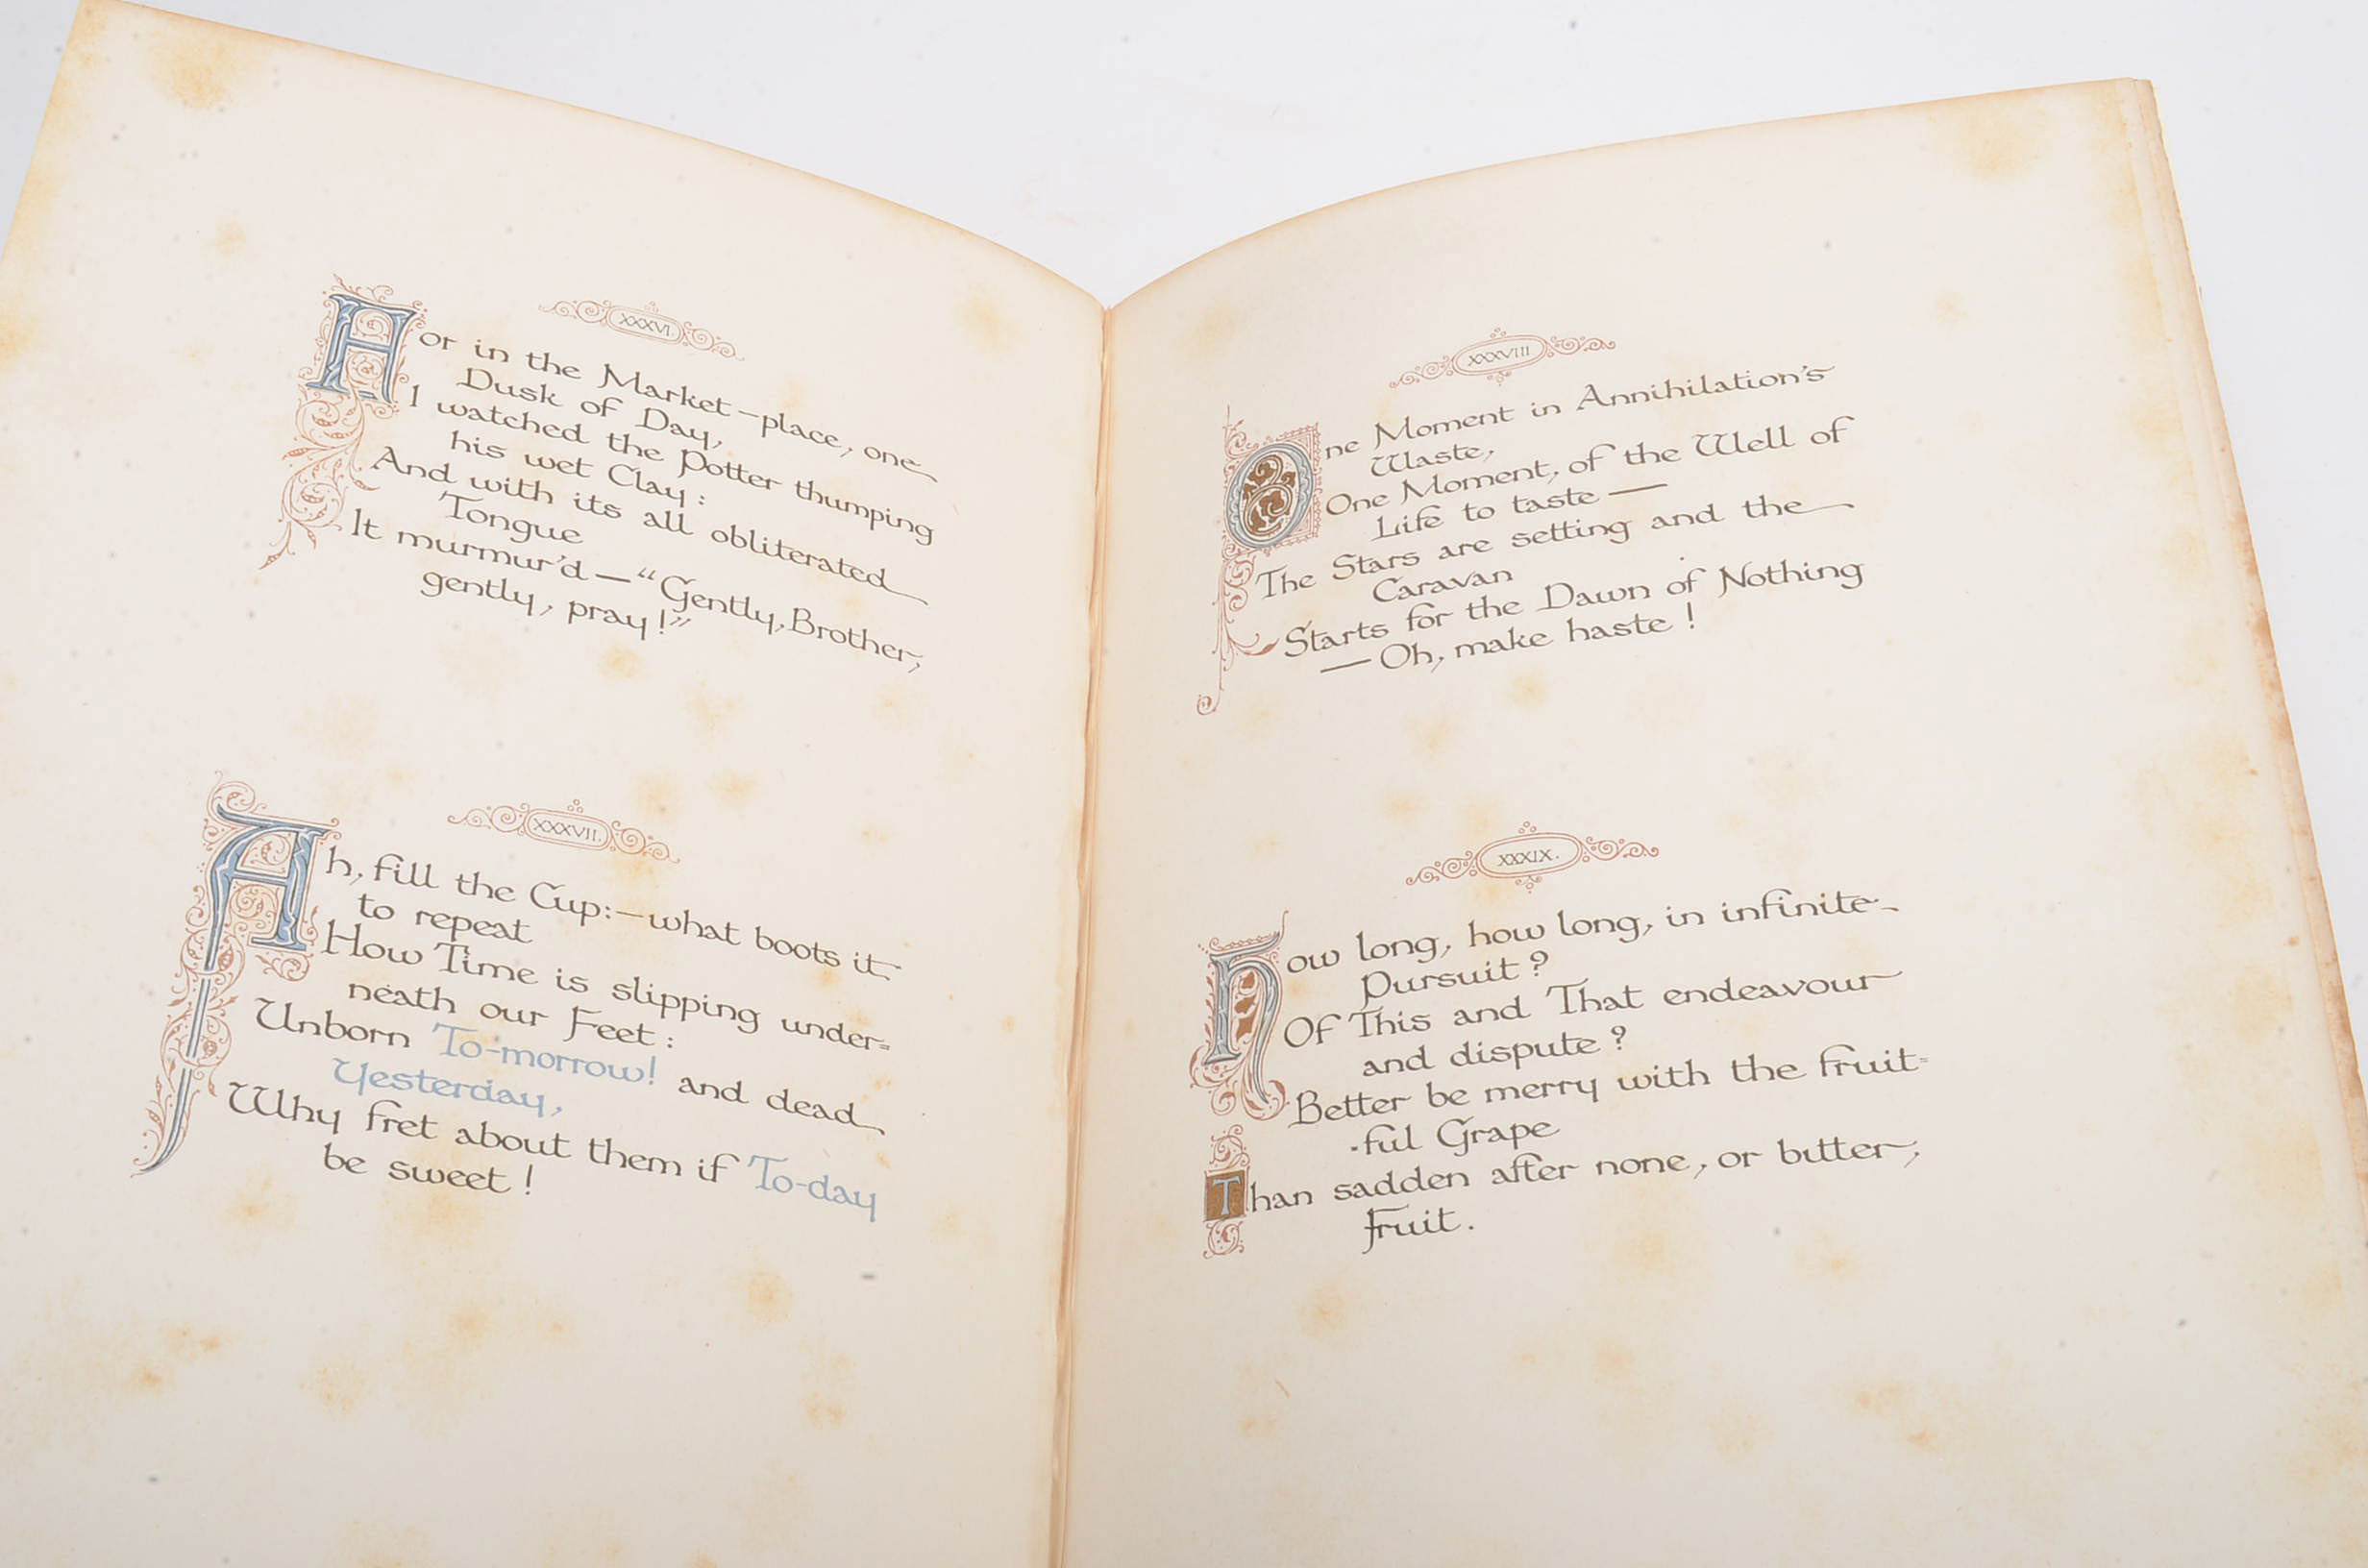 XXXVI.
For in the Market-place, one
Dusk of Day,
I watched the Potter thumping
his wet Clay:
And with its all obliterated
Tongue
It murmur'd—"Gently, Brother,
gently, pray!"
XXXVII.
Ah, fill the Cup:—what boots it
to repeat
How Time is slipping under=
neath our Feet:
Unborn To-morrow! and dead
Yesterday,
Why fret about them if To-day
be sweet!
XXXVIII
One Moment in Annihilation's
Waste,
One Moment, of the Well of
Life to taste—
The Stars are setting and the
Caravan
Starts for the Dawn of Nothing
—Oh, make haste!
XXXIX.
How long, how long, in infinite
Pursuit?
Of This and That endeavour
and dispute?
Better be merry with the fruit=
-ful Grape
Than sadden after none, or bitter,
Fruit.